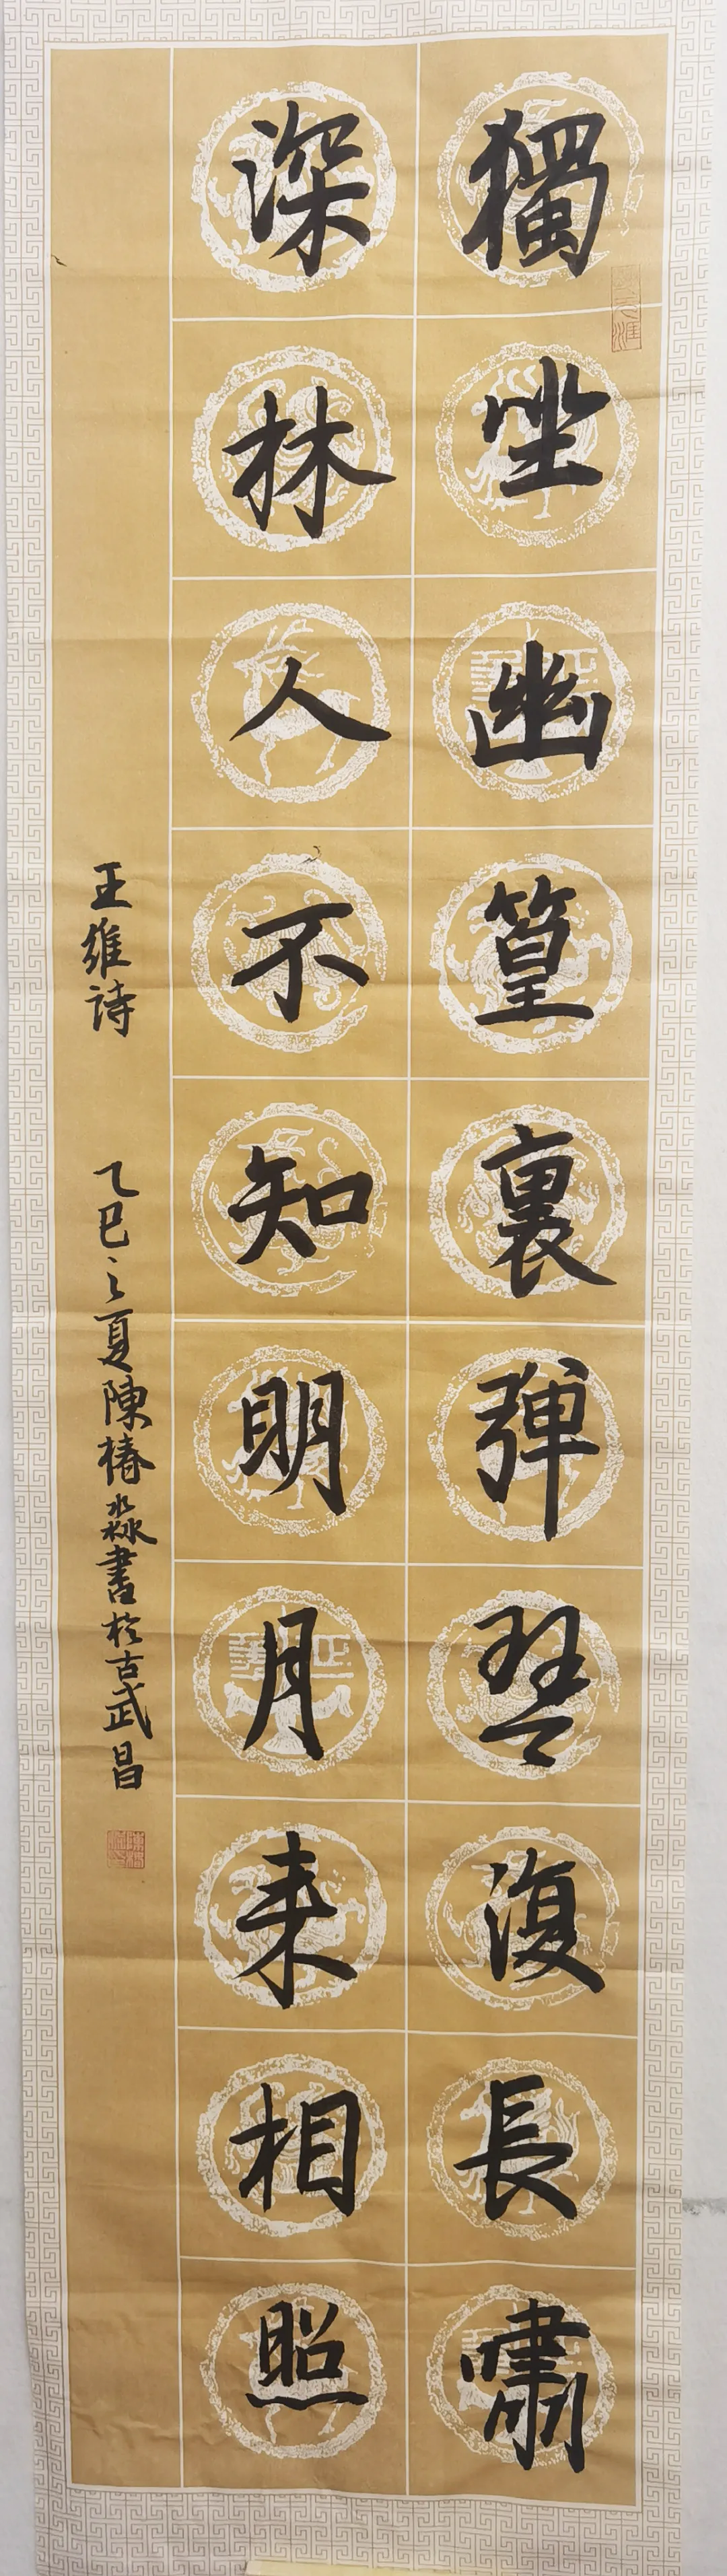 獨坐幽篁裏彈琴復長嘯
深林人不知明月来相照
王維詩
乙巳之夏陳椿淼書於古武昌